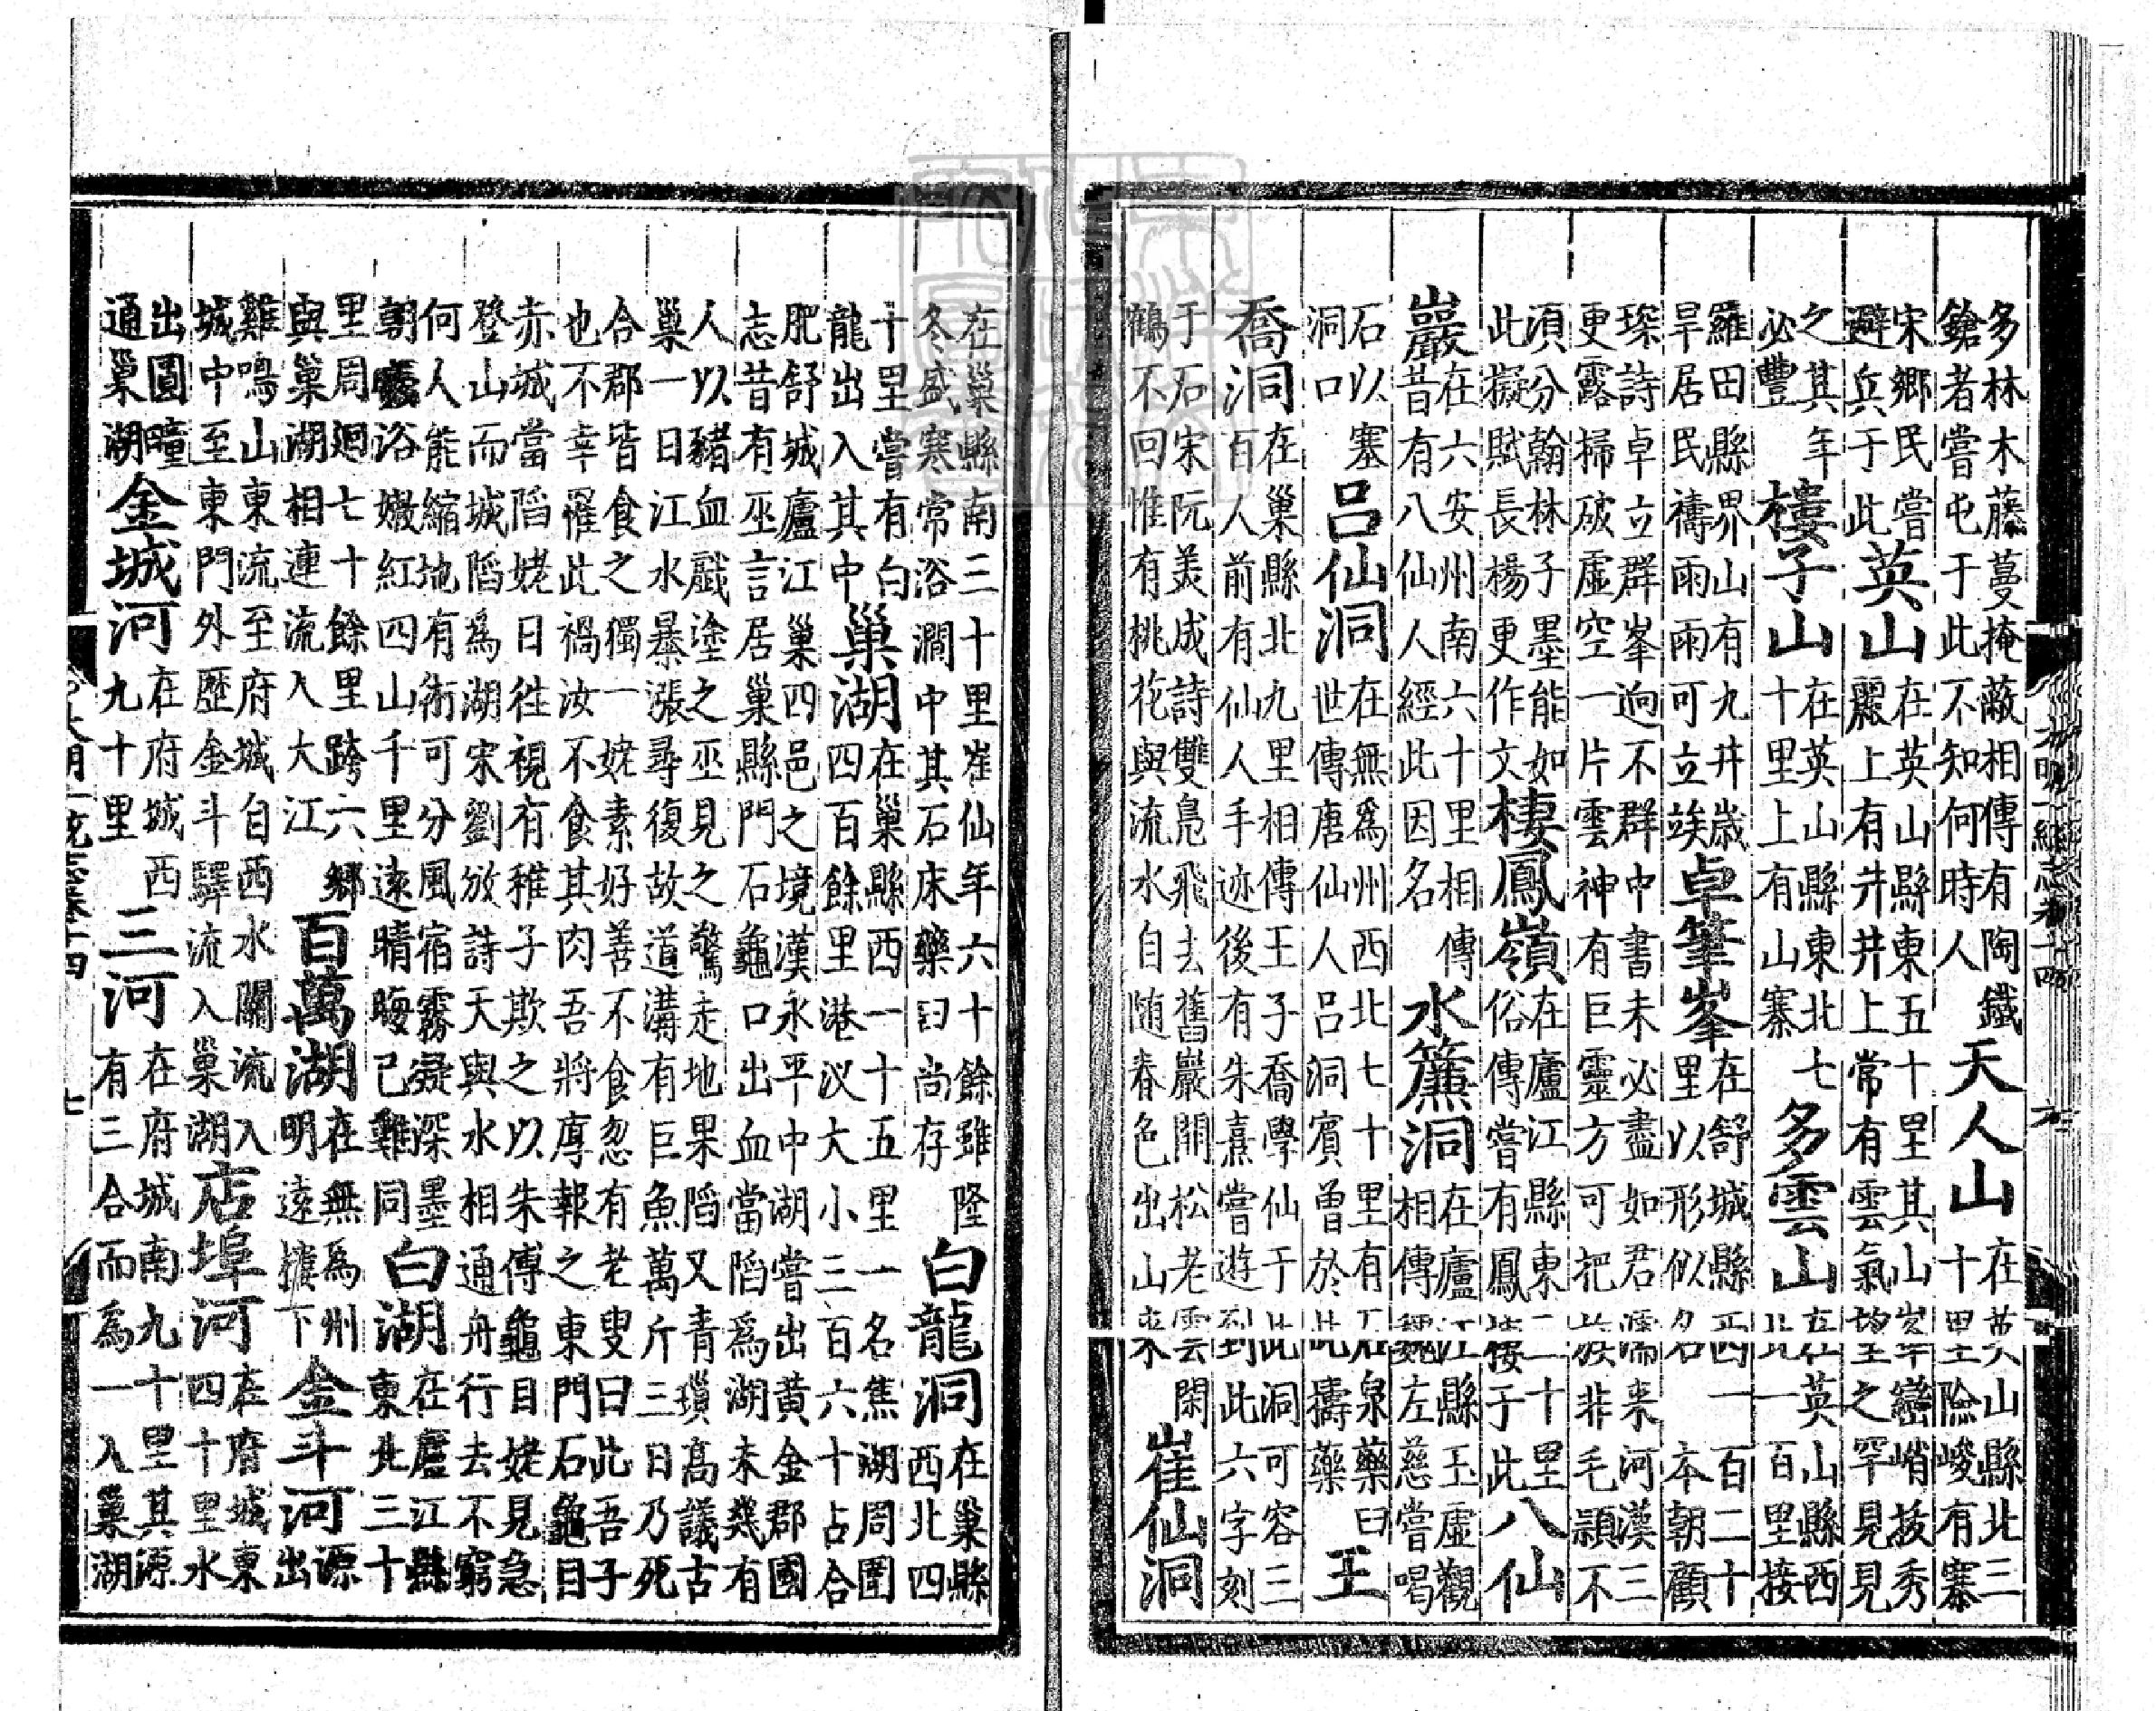 多林木藤蔓掩蔽相傳有陶鐵
鎗者嘗屯于此不知何時人
天人山
在英山縣北三
十里險峻有寨
宋鄉民嘗
避兵于此
英山
在英山縣東五十里其山峯巒峭拔秀
麗上有井井上常有雲氣望之罕見見
之其年
必豐
樓子山
在英山縣東北七
十里上有山寨
多雲山
在英山縣西
北一百里接
羅田縣界山有九井歲
旱居民禱雨雨可立竢
卓筆峯
在舒城縣西一百二十
里以形似名本朝顧
琛詩卓立群峯逈不群中書未必盡如君濡来河漢三
更露掃破虛空一片雲神有巨靈方可把族非毛穎不
湏分翰林子墨能如
此擬賦長楊更作文
棲鳳嶺
在廬江縣東二十里
俗傳嘗有鳳棲于此
八仙
巖
在六安州南六十里相傳
昔有八仙人經此因名
水簾洞
在廬江縣玉虛觀
相傳魏左慈嘗喝
石以塞
洞口
吕仙洞
在無爲州西北七十里有石泉藥臼
世傳唐仙人吕洞賓曾於此擣藥
王
喬洞
在巢縣北九里相傳王子喬學仙于此洞可容三
百人前有仙人手迹後有朱熹嘗遊到此六字刻
于石宋阮美成詩雙鳧飛去舊巖閒松老雲閑
鶴不回惟有桃花與流水自随春色出山来
崔仙洞
在巢縣南三十里崔仙年六十餘雖隆
冬盛寒常浴澗中其石床藥臼尚存
白龍洞
在巢縣
西北四
十里嘗有白
龍出入其中
巢湖
在巢縣西一十五里一名焦湖周圍
四百餘里港汊大小三百六十占合
肥舒城廬江巢四邑之境漢永平中湖嘗出黄金郡國
志昔有巫言居巢縣門石龜口出血當陷爲湖未幾有
人以豬血戲塗之巫見之驚走地果陷又青瑣高議古
巢一日江水暴漲尋復故道溝有巨魚萬斤三日乃死
合郡皆食之獨一姥素好善不食忽有老叟曰此吾子
也不幸罹此禍汝不食其肉吾將厚報之東門石龜目
赤城當陷姥日往視有稚子欺之以朱傅龜目姥見急
登山而城陷爲湖宋劉攽詩天與水相通舟行去不窮
何人能縮地有術可分風宿霧凝深墨
朝霞浴嫩紅四山千里遠晴晦已難同
白湖
在廬江縣
東北三十
里周廻七十餘里跨六鄉
與巢湖相連流入大江
百萬湖
在無爲州
明遠擴下
金斗河
源
出
雞鳴山東流至府城自西水關流入
城中至東門外歷金斗驛流入巢湖
店埠河
在府城東
四十里水
出圓疃
通巢湖
金城河
在府城西
九十里
三河
在府城南九十里其源
有三合而爲一入巢湖
大明一統志卷十四
七